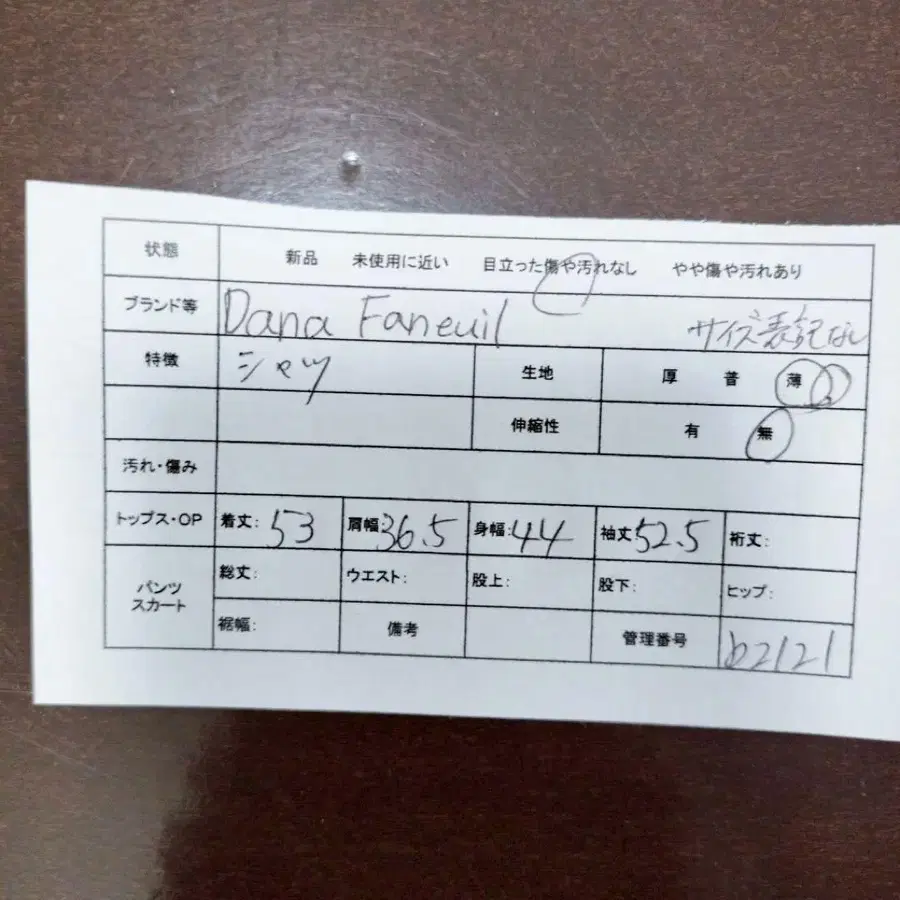 状態 新品 未使用に近い 目立った傷や汚れなし やや傷や汚れあり
ブランド等 Dana Faneuil サイズ表記なし
特徴 シャツ 生地 厚 普 薄
伸縮性 有 無
汚れ・傷み
トップス・OP 着丈: 53 肩幅: 36.5 身幅: 44 袖丈 52.5 裄丈:
パンツ スカート 総丈: ウエスト: 股上: 股下: ヒップ:
裾幅: 備考 管理番号 b2121